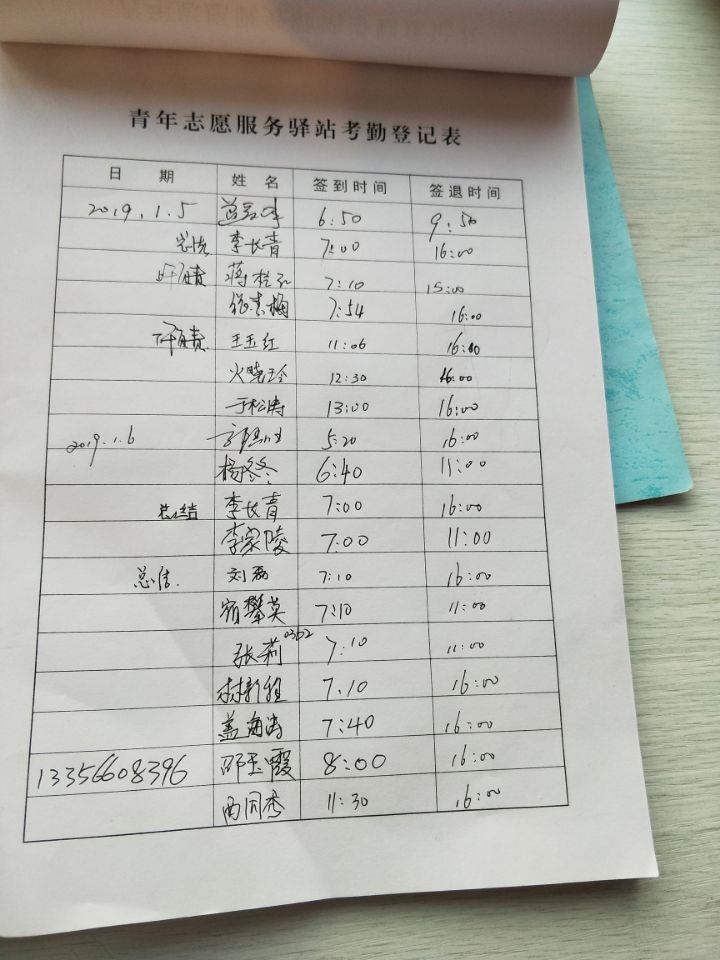 青年志愿服务驿站考勤登记表
日 期 姓 名 签到时间 签退时间
2019.1.5 6:50 9:50
李长青 7:00 16:00
蒋桂 7:10 15:00
张素梅 7:54 16:00
王玉红 11:06 16:00
火晓玲 12:30 16:00
于松涛 13:00 16:00
2019.1.6 5:20 16:00
杨冬冬 6:40 11:00
总结 李长青 7:00 16:00
李家陵 7:00 11:00
刘磊 7:10 16:00
宿攀英 7:10 11:00
张莉 0302 7:10 11:00
林新程 7.10 16:00
盖海涛 7:40 16:00
13356608396 邵玉霞 8:00 16:00
同秀 11:30 16:00